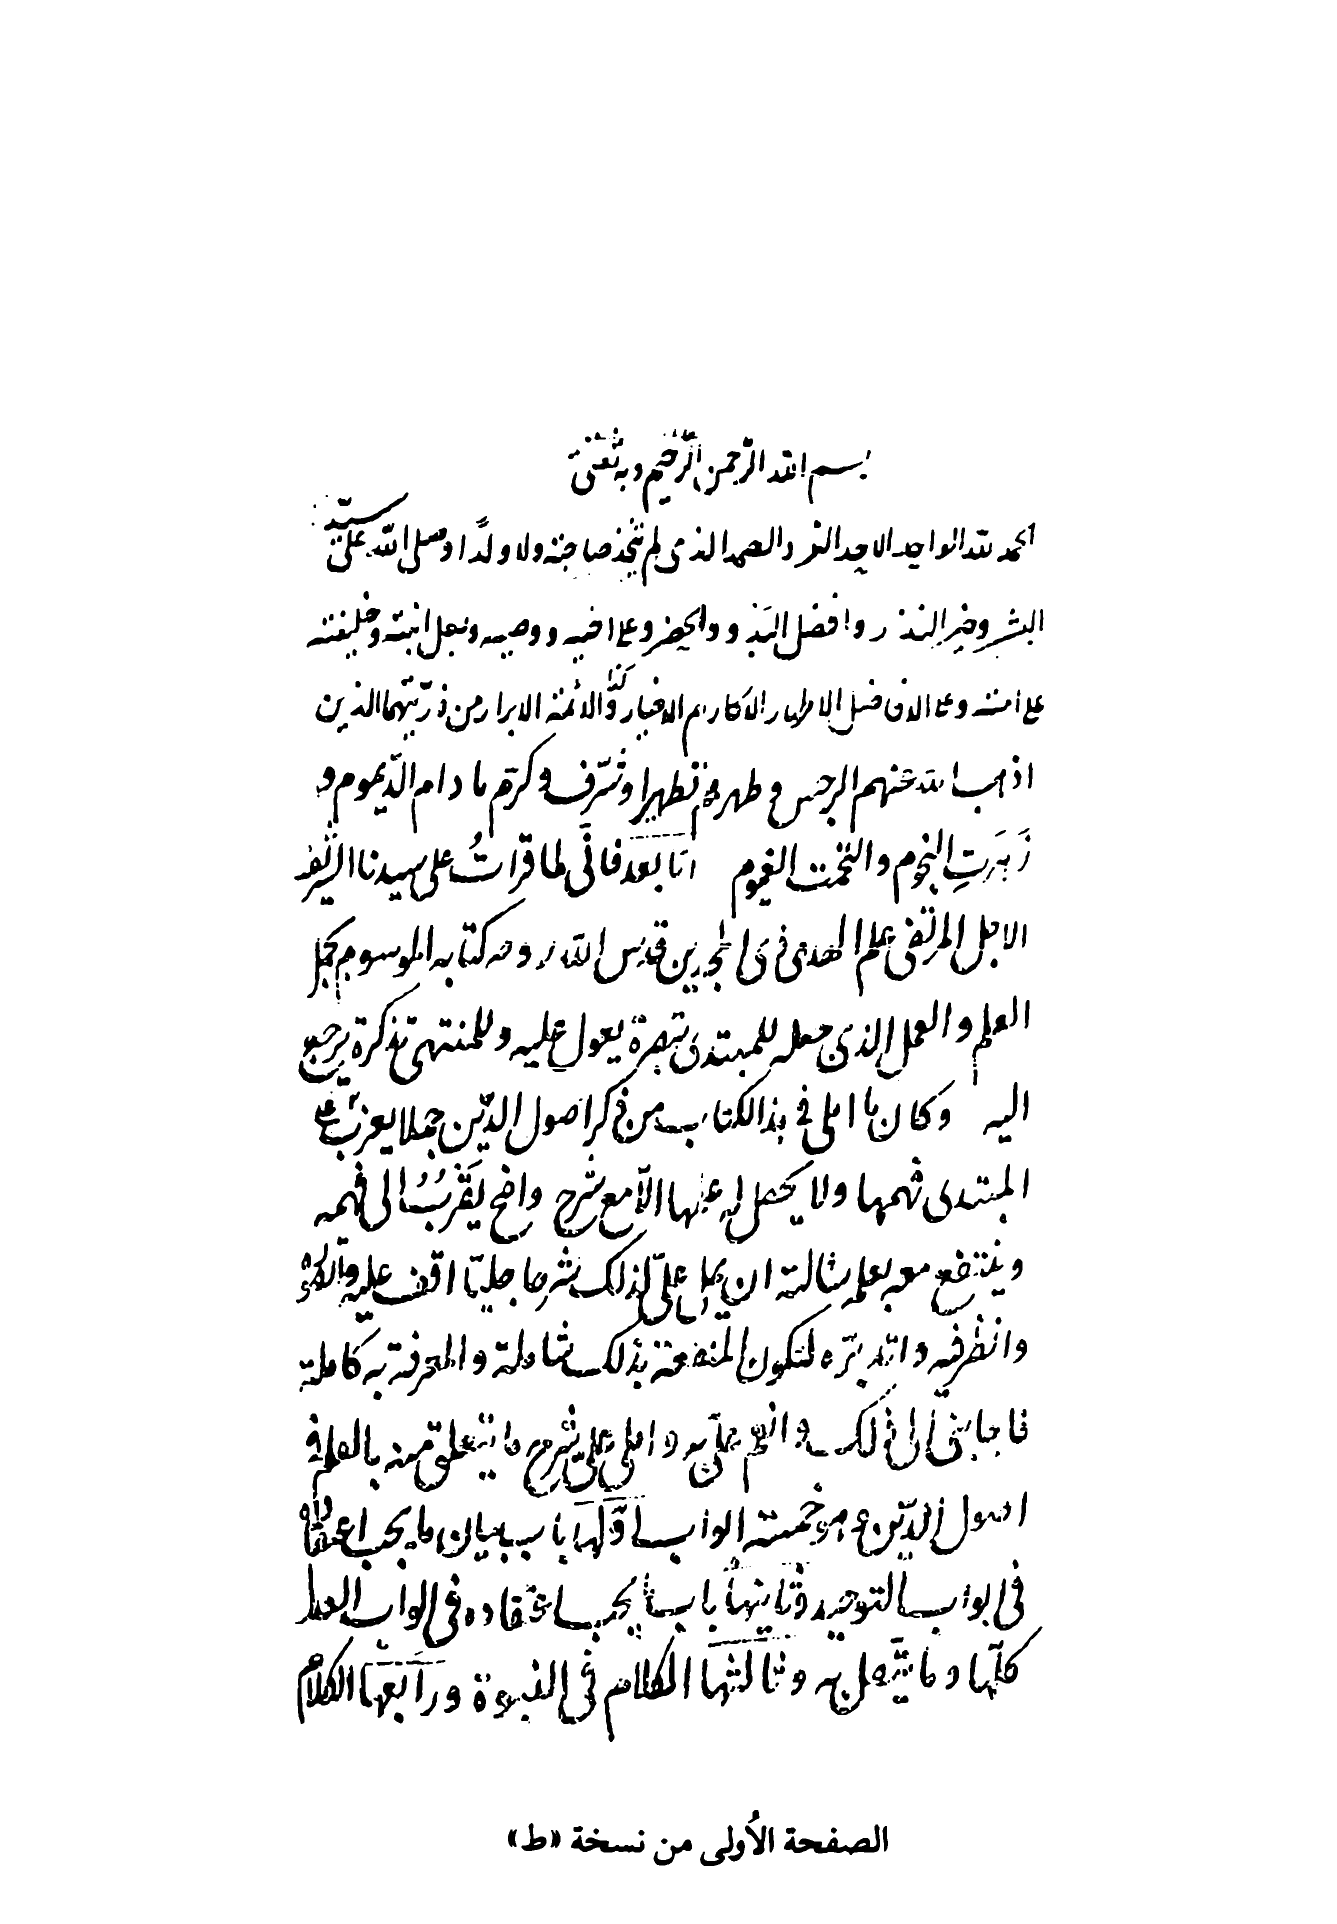 بسم الله الرحمن الرحيم وبه ثقتى
الحمد لله الواحد الاحد الفرد الصمد الذى لم يتخذ صاحبة ولا ولدًا وصلى الله على سيّد
البشر وخير النذر وافضل البَدْو والحضر وعلى اخيه ووصيه وبعل ابنته وخليفته
على امته وعلى الافاضل الاطهار الاكارم الاخيار والائمة الابرار من ذرّيتهما الذين
اذهب الله عنهم الرجس وطهرهم تطهيرا وشرّف وكرّم ما دام الدّيموم و
زَهَرَتِ النجوم والتحمت الغيوم امّا بعد فانّى لما قراتُ على سيدنا الشريف
الاجل المرتضى علم الهدى ذى المجدين قدس الله روحه كتابه الموسوم بجمل
العلم والعمل الذى جعله للمبتدى تبصرة يعول عليه وللمنتهى تذكرة يرجع
اليه وكان ما املى فى هذا الكتاب من ذكر اصول الدّين جملا يعزب على
المبتدى فهمها ولا يحصل له علمها الّا مع شرح واضح يُقَرِّبُ الى فهمه
وينتفع معه بعلمه سالته ان يملى علىّ لذلك شرحا جليّا اقف عليه
وانظر فيه واتدبّره لتكون المنفعة بذلك شاملة والمعرفة به كاملة
فاجابنى الى ذلك وانعم علىّ به واملى علىّ شرح ما يتعلق منه بالعلم فى
اصول الدّين وهو خمسة ابواب اوّلها باب بيان ما يجب اعتقاده
فى ابواب التوحيد وثانيها باب ما يجب اعتقاده فى ابواب العدل
كلّها وما يتّصل به وثالثها الكلام فى النبوة ورابعها الكلام
الصفحة الأولى من نسخة «ط»